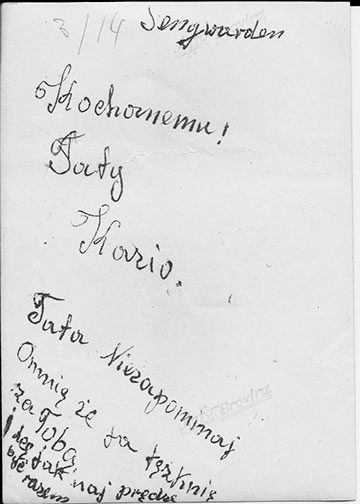 3/14 Sengwarden
Kochanemu!
Taty
Kazio.
Tata Niezapominaj
Omnię że ja tęzknię
za Tobą.
i chcę jak naj prędze
być razem